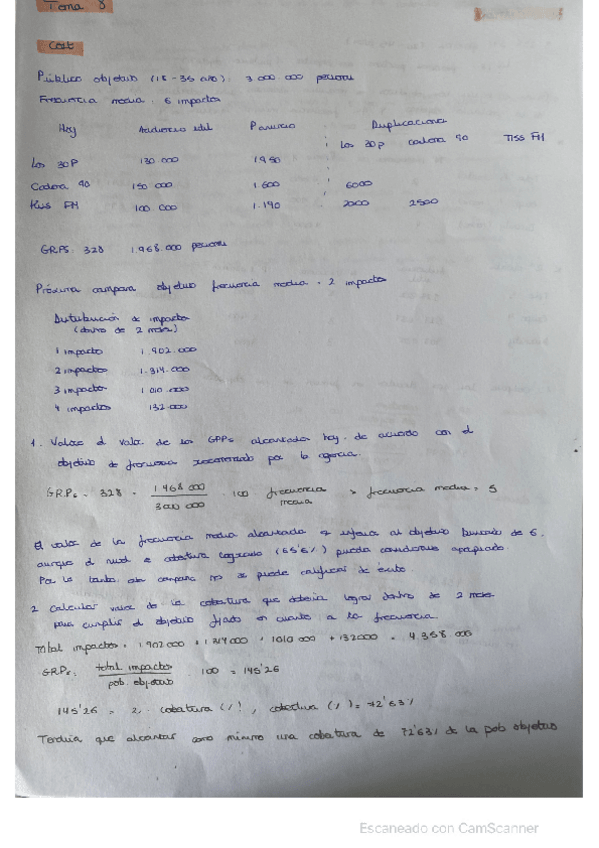 Tema 8
Cost
Público objetivo (18-36 año): 3 000 000 personas
Frecuencia media: 6 impactos
Hoy Audiencia total Duplicaciones
Los 30P cadena 90 Tiss FM
Los 30P 130 000 1950
Cadena 90 150 000 1.600 6000
Kiss FM 100 000 1.190 2000 2500
GRPS: 328 1.968.000 personas
Próxima campaña objetivo frecuencia media = 2 impactos
Distribución de impactos
(dentro de 2 meses)
1 impacto 1.902.000
2 impactos 1.314.000
3 impactos 1 010.000
4 impactos 132.000
1. Valore el valor de los GPPs alcanzados hoy de acuerdo con el
objetivo de frecuencia recomendado por la agencia.
G.R.P.s = 328 = 1 968 000 / 3 000 000 · 100 frecuencia media > frecuencia media = 5
El valor de la frecuencia media alcanzada es inferior al objetivo de 6,
aunque el nivel de cobertura logrado (65'6%) pueda considerarse apropiado.
Por lo tanto, la campaña no se puede calificar de éxito.
2 Calcular valor de la cobertura que debería lograr dentro de 2 meses
para cumplir el objetivo fijado en cuanto a la frecuencia.
Total impactos = 1.902 000 + 1.314 000 + 1010 000 + 132000 = 4.358 000
G.R.P.s = total impactos / pob. objetivo · 100 = 145'26
145'26 = 2 · cobertura (%), cobertura (%) = 72'63%
Tendría que alcanzar como mínimo una cobertura de 72'63% de la pob objetivo
Escaneado con CamScanner